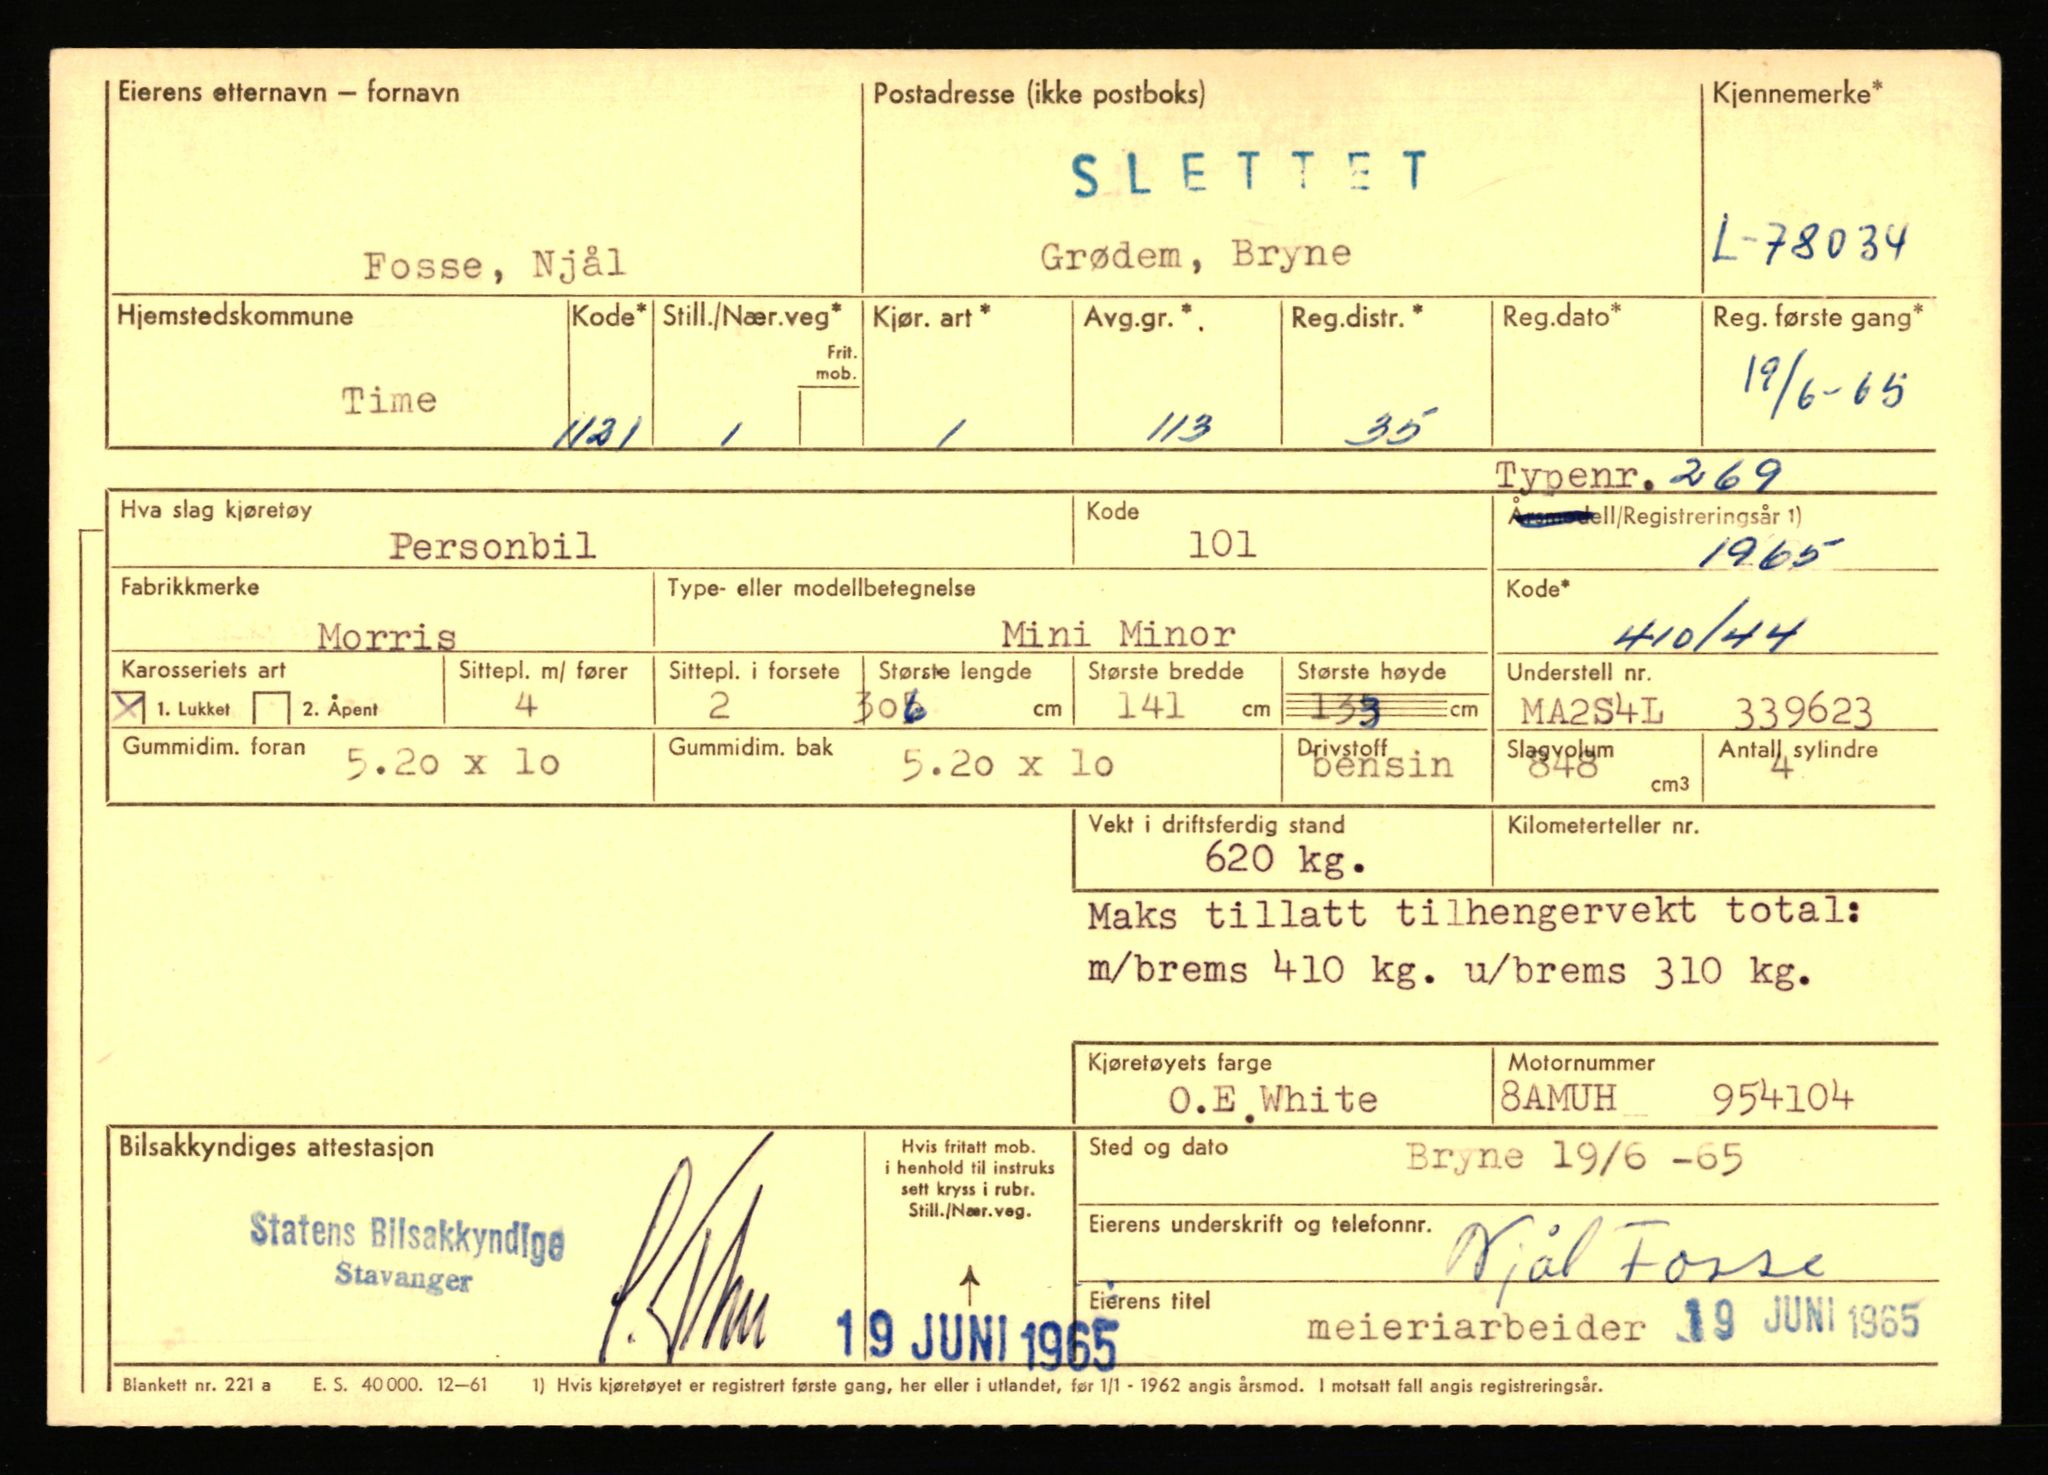 Eierens etternavn – fornavn Postadresse (ikke postboks) Kjennemerke*
SLETTET
Fosse, Njål Grødem, Bryne L-78034
Hjemstedskommune Kode* Still./Nær.veg* Kjør. art* Avg.gr.*. Reg.distr.* Reg.dato* Reg. første gang*
Frit.
mob.
Time 1121 1 1 113 35 19/6-65
Typenr. 269
Hva slag kjøretøy Kode Årsmodell/Registreringsår 1)
Personbil 101 1965
Fabrikkmerke Type- eller modellbetegnelse Kode*
Morris Mini Minor 410/44
Karosseriets art Sittepl. m/ fører Sittepl. i forsete Største lengde Største bredde Største høyde Understell nr.
1. Lukket 2. Åpent 4 2 306 cm 141 cm 133 cm MA2S4L 339623
Gummidim. foran Gummidim. bak Drivstoff Slagvolum Antall sylindre
5.20 x 10 5.20 x 10 bensin 848 cm3 4
Vekt i driftsferdig stand Kilometerteller nr.
620 kg.
Maks tillatt tilhengervekt total:
m/brems 410 kg. u/brems 310 kg.
Kjøretøyets farge Motornummer
O.E.White 8AMUH 954104
Bilsakkyndiges attestasjon Hvis fritatt mob.
i henhold til instruks
sett kryss i rubr.
Still./Nær.veg.
Sted og dato Bryne 19/6 -65
Statens Bilsakkyndige
Stavanger
Eierens underskrift og telefonnr. Njål Fosse
Eierens titel
19 JUNI 1965 meieriarbeider 19 JUNI 1965
Blankett nr. 221 a E. S. 40 000. 12–61 1) Hvis kjøretøyet er registrert første gang, her eller i utlandet, før 1/1 - 1962 angis årsmod. I motsatt fall angis registreringsår.